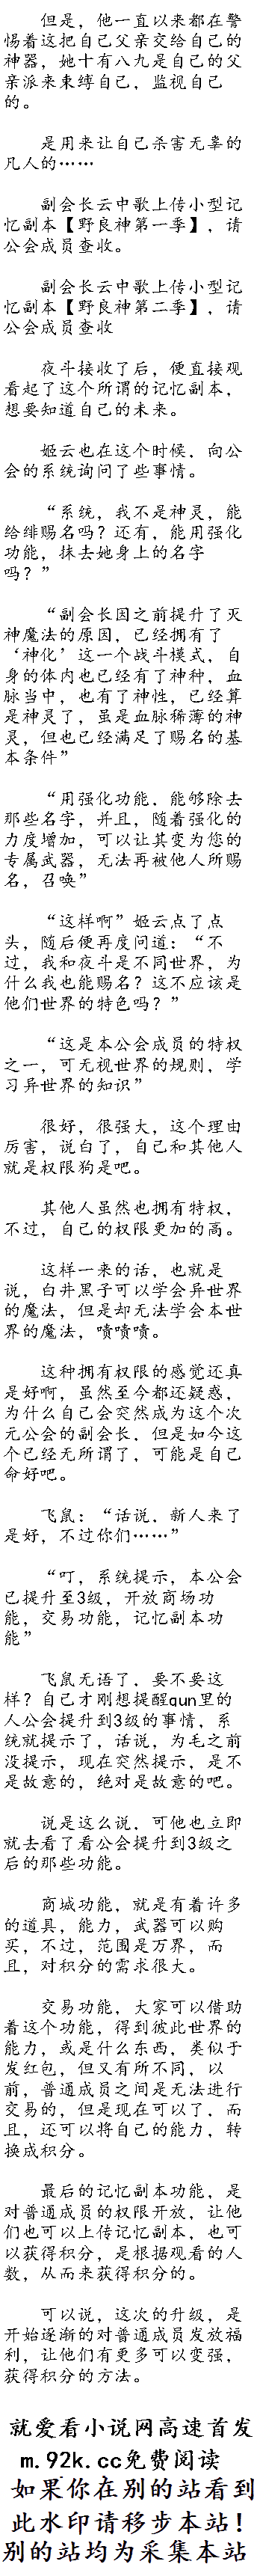 但是，他一直以来都在警
惕着这把自己父亲交给自己的
神器，她十有八九是自己的父
亲派来束缚自己，监视自己
的。
是用来让自己杀害无辜的
凡人的……
副会长云中歌上传小型记
忆副本【野良神第一季】，请
公会成员查收。
副会长云中歌上传小型记
忆副本【野良神第二季】，请
公会成员查收
夜斗接收了后，便直接观
看起了这个所谓的记忆副本，
想要知道自己的未来。
姬云也在这个时候，向公
会的系统询问了些事情。
“系统，我不是神灵，能
给绯赐名吗？还有，能用强化
功能，抹去她身上的名字
吗？”
“副会长因之前提升了灭
神魔法的原因，已经拥有了
‘神化’这一个战斗模式，自
身的体内也已经有了神种，血
脉当中，也有了神性，已经算
是神灵了，虽是血脉稀薄的神
灵，但也已经满足了赐名的基
本条件”
“用强化功能，能够除去
那些名字，并且，随着强化的
力度增加，可以让其变为您的
专属武器，无法再被他人所赐
名，召唤”
“这样啊”姬云点了点
头，随后便再度问道：“不
过，我和夜斗是不同世界，为
什么我也能赐名？这不应该是
他们世界的特色吗？”
“这是本公会成员的特权
之一，可无视世界的规则，学
习异世界的知识”
很好，很强大，这个理由
厉害，说白了，自己和其他人
就是权限狗是吧。
其他人虽然也拥有特权，
不过，自己的权限更加的高。
这样一来的话，也就是
说，白井黑子可以学会异世界
的魔法，但是却无法学会本世
界的魔法，啧啧啧。
这种拥有权限的感觉还真
是好啊，虽然至今都还疑惑，
为什么自己会突然成为这个次
元公会的副会长，但是如今这
个已经无所谓了，可能是自己
命好吧。
飞鼠：“话说，新人来了
是好，不过你们……”
“叮，系统提示，本公会
已提升至3级，开放商场功
能，交易功能，记忆副本功
能”
飞鼠无语了，要不要这
样？自己才刚想提醒qun里的
人公会提升到3级的事情，系
统就提示了，话说，为毛之前
没提示，现在突然提示，是不
是故意的，绝对是故意的吧。
说是这么说，可他也立即
就去看了看公会提升到3级之
后的那些功能。
商城功能，就是有着许多
的道具，能力，武器可以购
买，不过，范围是万界，而
且，对积分的需求很大。
交易功能，大家可以借助
着这个功能，得到彼此世界的
能力，或是什么东西，类似于
发红包，但又有所不同，以
前，普通成员之间是无法进行
交易的，但是现在可以了，而
且，还可以将自己的能力，转
换成积分。
最后的记忆副本功能，是
对普通成员的权限开放，让他
们也可以上传记忆副本，也可
以获得积分，是根据观看的人
数，从而来获得积分的。
可以说，这次的升级，是
开始逐渐的对普通成员发放福
利，让他们有更多可以变强，
获得积分的方法。
就爱看小说网高速首发
m.92k.cc免费阅读
如果你在别的站看到
此水印请移步本站！
别的站均为采集本站